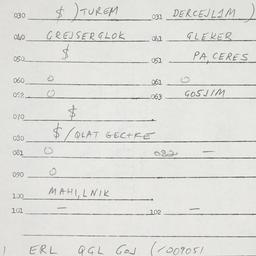 030 $ ) TUREM 031 DERCEJL1M )
040 GREJSERGLOK 041 GLEKER
050 $ 051 PA, CERES
060 0 061 0
052 0 063 GOSJIM
020 $
030 $ / QLAT GECTFE
081 0 082 —
090 0
100 MAHI, LNIK
101 — 102 —
ERL QGL GOJ (-009051